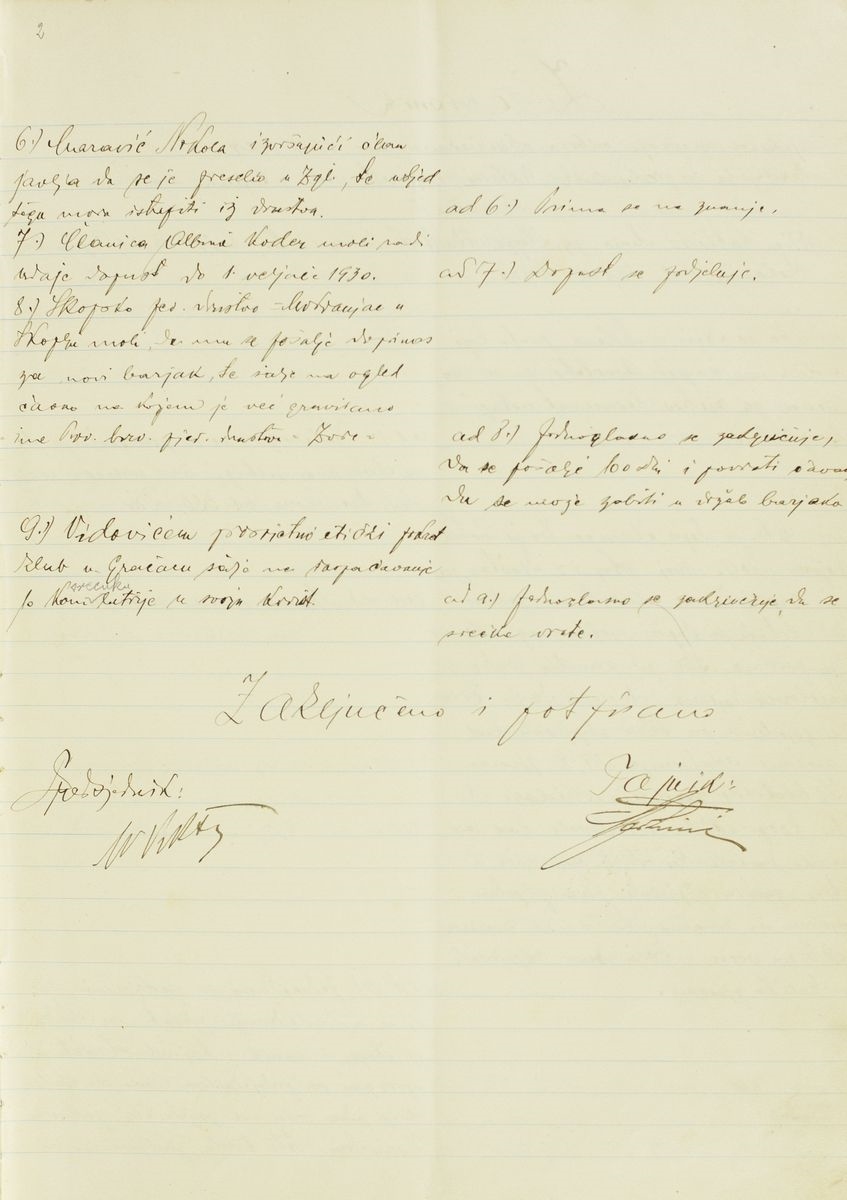 2
6.) Maravić Nikola izvršujući član
javlja da se je preselio u Zgb., te usljed
toga mora istupiti iz društva.
ad 6.) Prima se na znanje.
7.) Članica Albina Koder moli radi
udaje dopust do 1. veljače 1930.
ad 7.) Dopust se podjeljuje.
8.) Skopsko pev. društvo "Mokranjac" u
Skoplju moli, da mu se pošalje doprinos
za novi barjak, te šalje na ogled
čavao na kojem je već gravirano
ime Prv. hrv. pjev. društva "Zora"
ad 8.) Jednoglasno se zaključuje,
da se pošalje 100 din i povrati čavao,
da se može zabiti u držalo barjaka
9.) Vidovićem prosvjetno etički pokret
klub u Gračacu šalje na raspačavanje
srećaka
10 kom. lutrije u svoju korist.
ad 9.) Jednoglasno se zaključuje, da se
srećke vrate.
Zaključeno i potpisano
Predsjednik:
Tajnik: